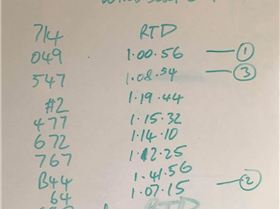 714 RTD
049 1.00.56 ①
547 1.08.54 ③
#2 1.19.44
477 1.15.32
672 1.14.10
767 1.12.25
B44 1.41.56
64 1.07.15 ②
RTD